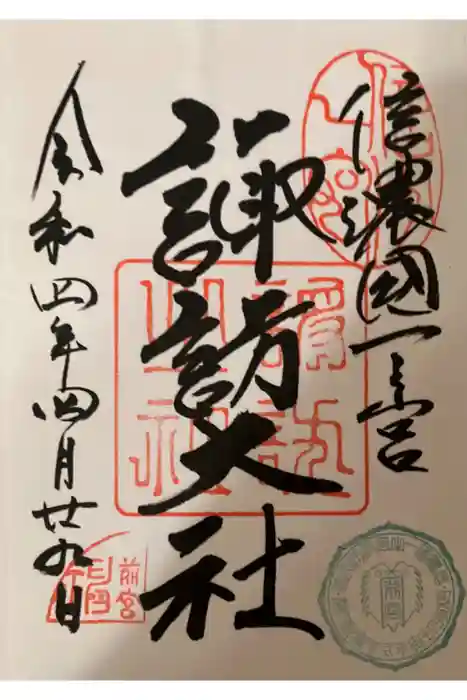 信濃國一之宮
諏訪大社
令和四年四月廿九日
前宮